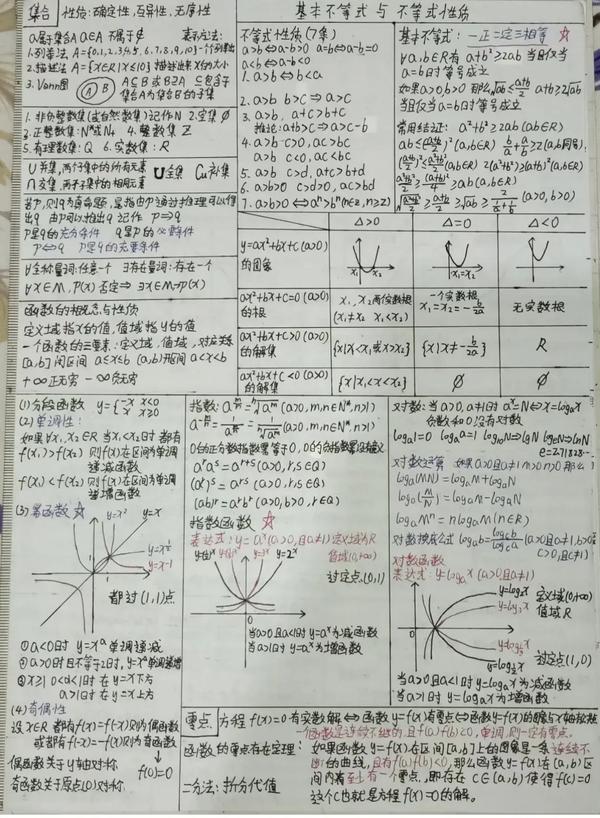 集合 性质:确定性,互异性,无序性
a属于集合A a∈A 不属于∉ 表示方法:
1.列举法 A={0,1,2,3,4,5,6,7,8,9,10}一个个列举出
2.描述法 A={x∈R|x≤10}描述出来x的大小
3.Venn图 A B A⊆B 或B⊇A ⊆包含于
集合A为集合B的子集
1.非负整数集(或自然数集)记作N 2.空集∅
3.正整数集:N*或N+ 4.整数集 Z
5.有理数集:Q 6.实数集:R
U并集,两个集中的所有元素 U全集 CuA补集
∩交集,两子集中的相同元素
若P,则q为真命题,是指由P通过推理可以得
出q 由P可以推出q 记作 P⇒q
P是q的充分条件 q是P的必要条件
P⇔q P是q的充要条件
∀全称量词:任意一个 ∃存在量词:存在一个
∀x∈M,P(x) 否定⇒ ∃x∈M¬P(x)
函数的概念与性质
定义域指x的值,值域指y的值
一个函数的三要素:定义域,值域,对应关系
[a,b]闭区间 a≤x≤b (a,b)开区间 a<x<b
+∞正无穷 -∞负无穷
基本不等式 与 不等式性质
不等式性质(7条)
a>b⇔a-b>0 a=b⇔a-b=0
a<b⇔a-b<0
1.a>b⇔b<a
2.a>b b>c⇒a>c
3.a>b,a+c>b+c
推论:a+b>c⇒a>c-b
4.a>b c>0,ac>bc
a>b c<0,ac<bc
5.a>b c>d,a+c>b+d
6.a>b>0 c>d>0,ac>bd
7.a>b>0⇔aⁿ>bⁿ(n∈z,n≥2)
基本不等式:一正二定三相等 ☆
∀a,b∈R有 a²+b²≥2ab 当且仅当
a=b时等号成立
如果a>0,b>0 那么√ab≤(a+b)/2 a+b≥2√ab
当且仅当a=b时等号成立
常用结论: a²+b²≥2ab(a,b∈R)
ab≤((a+b)/2)²(a,b∈R) b/a+a/b≥2(a,b同号)
((a+b)/2)²≤(a²+b²)/2(a,b∈R) 2(a²+b²)≥(a+b)²(a,b∈R)
(a²+b²)/2≥(a+b)²/4≥ab(a,b∈R)
√((a²+b²)/2)≥(a+b)/2≥√ab≥2/(1/a+1/b)(a>0,b>0)
Δ>0 Δ=0 Δ<0
y=ax²+bx+c(a>0)
的图象 x₁ x₂ x₁=x₂
ax²+bx+c=0(a>0)
的根 x₁,x₂两个实数根(x₁≠x₂ x₁<x₂) 一个实数根x₁=x₂=-b/2a 无实数根
ax²+bx+c>0(a>0)
的解集 {x|x<x₁或x>x₂} {x|x≠-b/2a} R
ax²+bx+c<0(a>0)
的解集 {x|x₁<x<x₂} ∅ ∅
(1)分段函数 y={-x x<0
x x≥0
(2)单调性:
如果∀x₁,x₂∈R 当x₁<x₂时 都有
f(x₁)>f(x₂) 则f(x)在区间为单调
递减函数
f(x₁)<f(x₂)则f(x)在区间为单调
递增函数
(3)幂函数 ☆
y=x² y=x
y=x^½
y=x⁻¹
都过(1,1)点
①a<0时 y=xᵃ单调递减
②a>0时且不等于2时,y=xᵃ单调递增
③x≥1 0<a<1时 在 y=x下方
a>1时 在 y=x上方
(4)奇偶性
设x∈R 都有f(x)=f(-x)则为偶函数
或都有f(-x)=-f(x)则为奇函数
偶函数关于y轴对称
奇函数关于原点(0)对称 f(0)=0
指数:a^(m/n)=ⁿ√aᵐ(a>0,m,n∈N*,n>1)
a^(-m/n)=1/a^(m/n)=1/ⁿ√aᵐ(a>0,m,n∈N*,n>1)
0的正分数指数幂等于0,0的负指数幂没有意义
aʳaˢ=aʳ⁺ˢ(a>0,r,s∈Q)
(aʳ)ˢ=aʳˢ(a>0,r,s∈Q)
(ab)ʳ=aʳbʳ(a>0,b>0,r∈Q)
指数函数 ☆
表达式:y=aˣ(a>0,且a≠1) 定义域为R
值域(0,+∞)
y=3ˣ y=2ˣ
过定点(0,1)
当a>0且a<1时 y=aˣ为减函数
当a>1时 y=aˣ为增函数
对数:当a>0,a≠1时 aˣ=N⇔x=logₐN
负数和0没有对数
logₐ1=0 logₐa=1 log₁₀N⇒lgN logₑN⇒lnN
e=2.71828…
对数运算 如果a>0且a≠1 m>0 n>0 那么
logₐ(MN)=logₐM+logₐN
logₐ(M/N)=logₐM-logₐN
logₐMⁿ=nlogₐM(n∈R)
对数换底公式 logₐb=log_c b/log_c a(a>0且a≠1,b>0
c>0,且c≠1)
对数函数
表达式:y=logₐx(a>0且a≠1)
y=log₂x 定义域(0,+∞)
y=log₃x 值域R
过定点(1,0)
当a>0且a<1时y=logₐx为减函数
当a>1时 y=logₐx为增函数
零点 方程 f(x)=0有实数解⇔函数y=f(x)有零点⇔函数y=f(x)的图象与x轴有公共点
一個函数是连续不断的,且f(a)f(b)<0,单调,则一定有零点.
函数的零点存在定理: 如果函数y=f(x)在区间[a,b]上的图象是一条连续不
断的曲线,且有f(a)f(b)<0,那么函数y=f(x)在(a,b)区
间内有至少有一个零点,即存在c∈(a,b)使得f(c)=0
这个c也就是方程f(x)=0的解。
二分法:折分代值